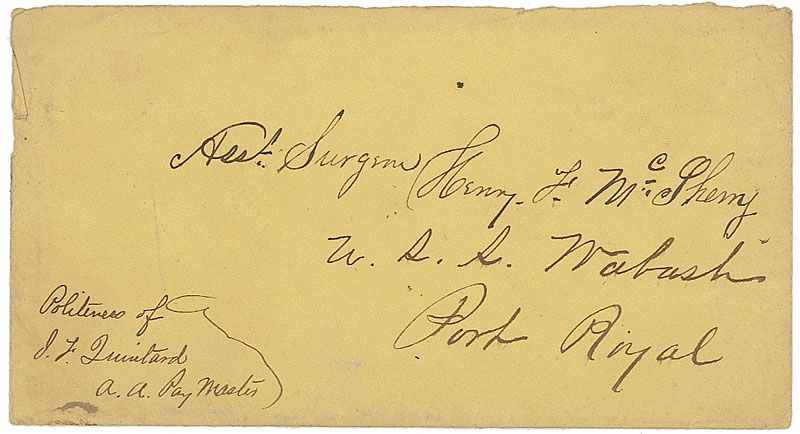 Asst. Surgeon Henry. F. McSherry
U. S. S. Wabash
Port Royal
Politeness of
J. F. Quintard
A. A. Pay Master